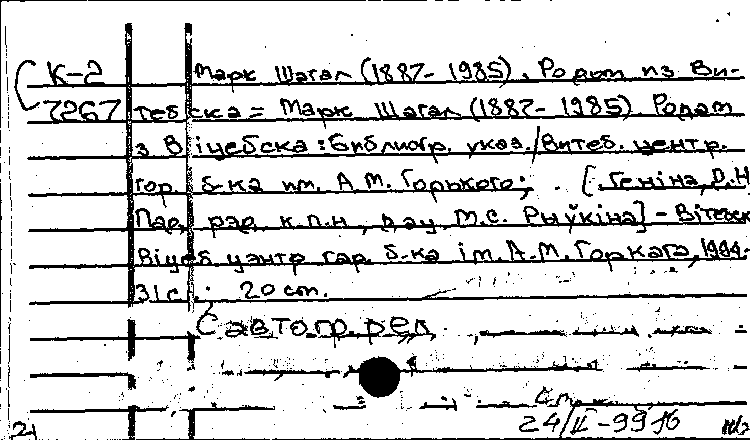 К-2 Марк Шагал (1887- 1985). Родом из Ви-
7267 тебска = Марк Шагал (1887- 1985). Родам
з Віцебска : библиогр. указ./Витеб. центр.
гор. б-ка им. А.М. Горького; [Геніна, Р.Н
Пад рэд. к.п.н, дац. М.С. Рыўкіна] - Вітебск
Віцеб цэнтр гар. б-ка ім. А.М. Горкага, 1994.
31 с.; 20 см.
С автогр. ред.
24/II-99
21